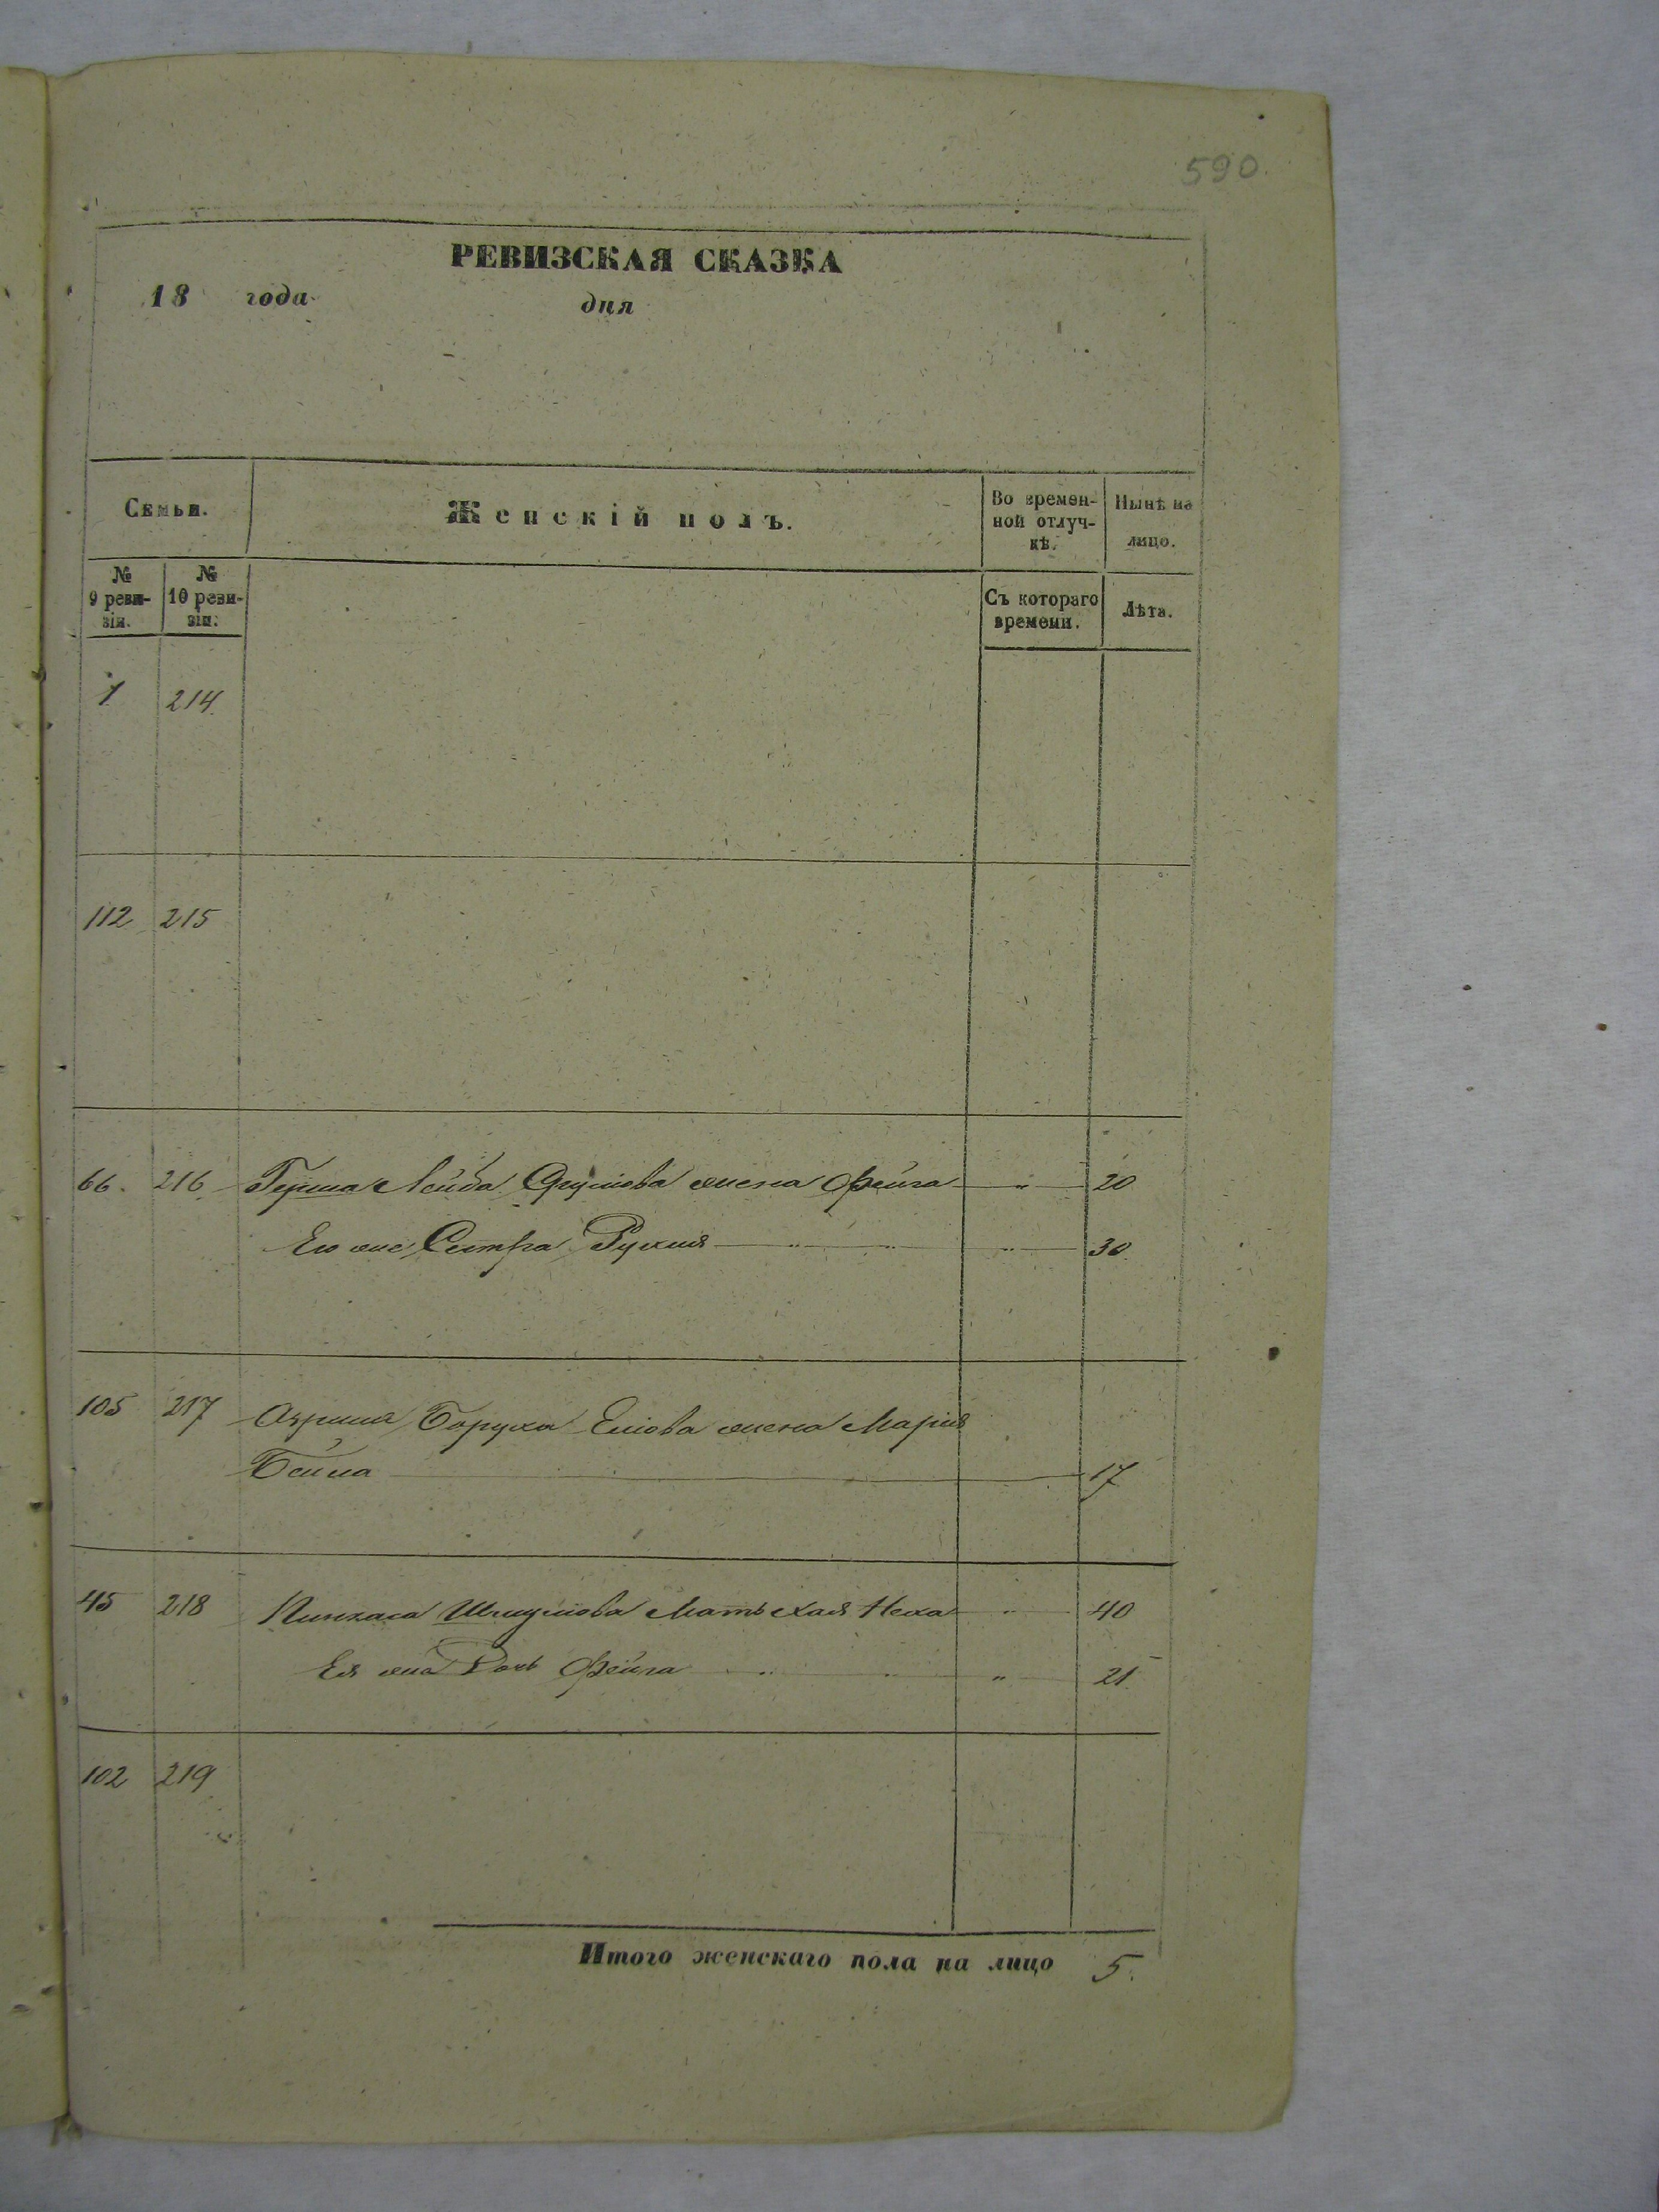 590.
РЕВИЗСКАЯ СКАЗКА
18 года дня
Семьи. Женскій полъ. Во времен- Нынѣ на
ной отлуч- лицо.
кѣ.
№ №
9 реви- 10 реви- Съ котораго Лѣта.
зіи. зіи. времени.
1 214.
112 215
66. 216 Герша Лейба Сруліова жена Фейга " 20
Его же Сестра " " " 30.
105 217 Боруха жена Марія
Бейла 17
45 218 Пинхаса Шмуліова Мать Хая Неха " 40
Ея Дочь Фейга " " " 21.
102 219
Итого женскаго пола на лицо 5.